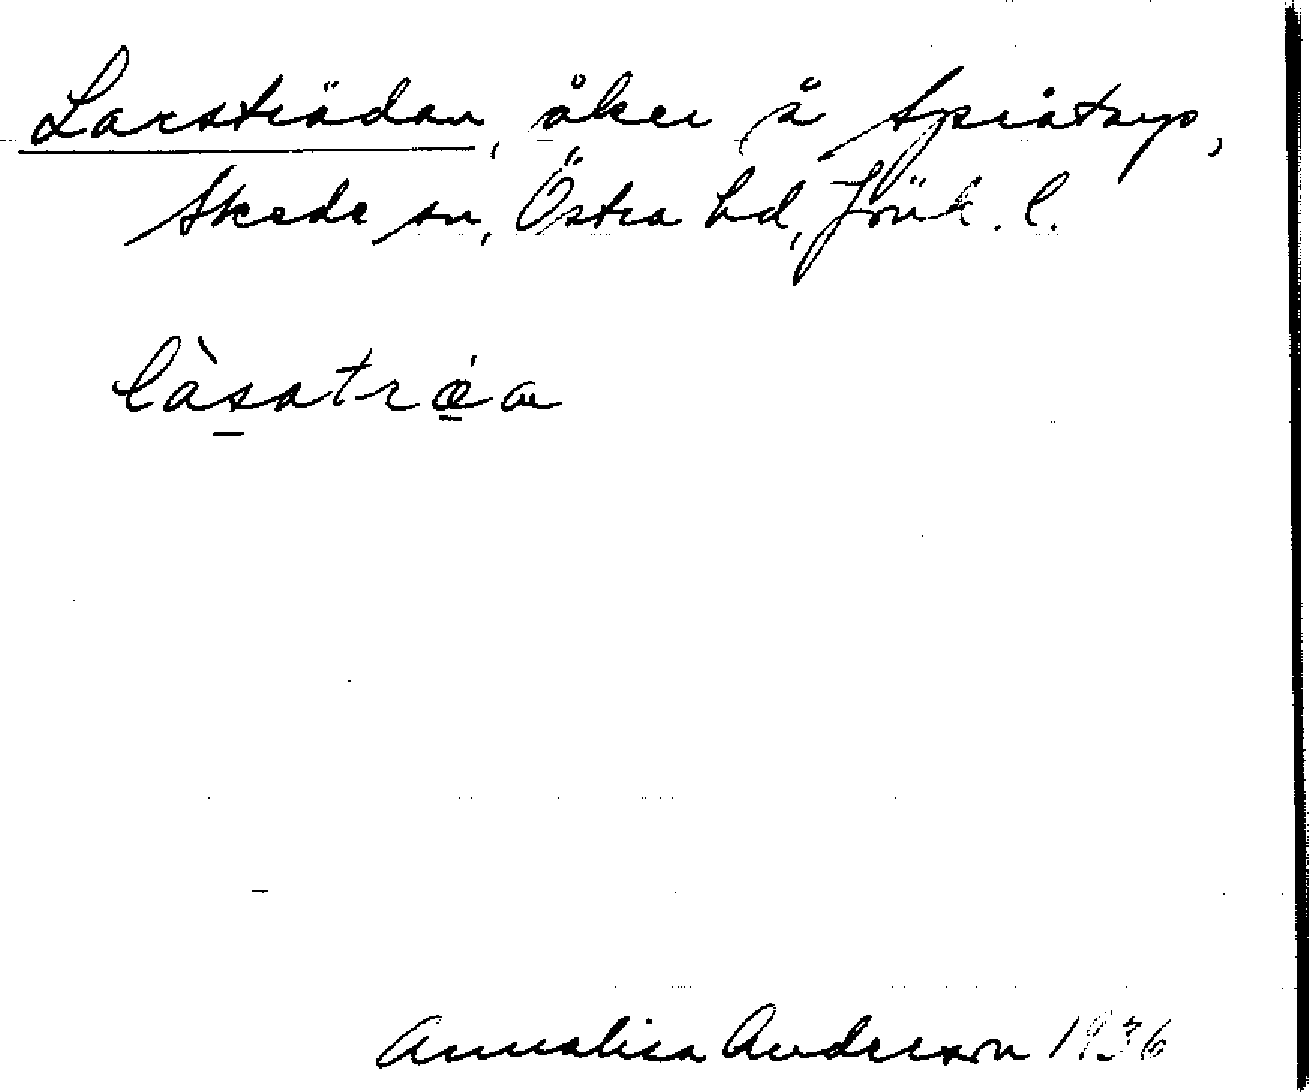 Larsträdan, åker å Språtorp,
Skede sn, Östra hd, Jönk. l.
làsatrǽa
Annalisa Anderson 1936